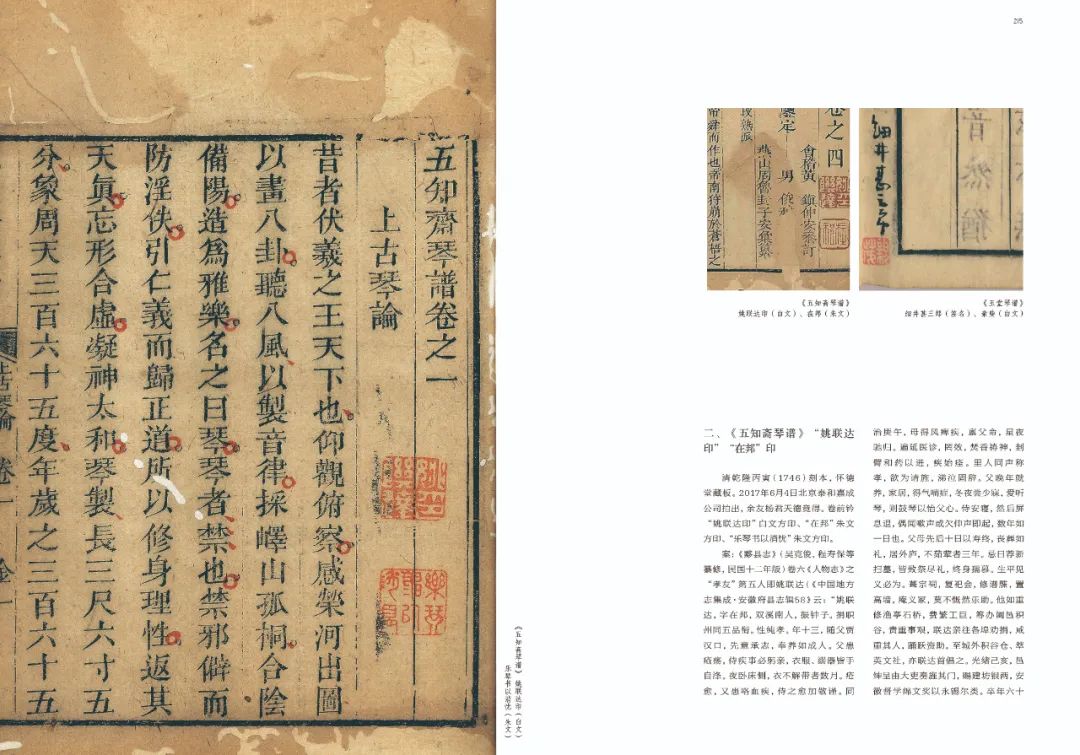 五知齋琴譜卷之一
上古琴論
昔者伏羲之王天下也仰觀俯察感榮河出圖
以畫八卦聽八風以製音律採嶧山孤桐合陰
備陽造爲雅樂名之曰琴琴者禁也禁邪僻而
防淫佚引仁義而歸正道所以修身理性返其
天眞忘形合虛凝神太和琴製長三尺六寸五
分象周天三百六十五度年歲之三百六十五
上古琴論 卷一
《五知斋琴谱》姚联达印（白文）
乐琴书以消忧（朱文）
215
卷之四
會稽黃 鎮仲安參訂
燕山周魯封子安彙纂
帝舜而作也帝南狩崩於蒼梧之
细井甚三郎
《五知斋琴谱》
姚联达印（白文）、在邦（朱文）
《玉堂琴谱》
细井甚三郎（签名）、
二、《五知斋琴谱》“姚联达
印”“在邦”印
清乾隆丙寅（1746）刻本，怀德
堂藏板。2017年6月4日北京泰和嘉成
公司拍出，余友杨君天德竞得。卷前钤
“姚联达印”白文方印、“在邦”朱文
方印、“乐琴书以消忧”朱文方印。
案：《黟县志》（吴克俊，程寿保等
纂修，民国十二年版）卷六《人物志》之
“孝友”第五人即姚联达（《中国地方
志集成·安徽府县志辑58》）云：“姚联
达，字在邦，双溪南人，振钟子，捐职
州同五品衔。性纯孝，年十三，随父贾
汉口，先意承志，奉养如成人。父患
疮疡，侍疾事必躬亲，衣服、溺器皆手
自涤，夜卧床侧，衣不解带者数月。疮
愈，又患咯血疾，侍之愈加敬谨。同
治庚午，母得风痹疾，禀父命，星夜
驰归。遍延医诊，罔效，焚香祷神，刲
臂和药以进，疾始痊。里人同声称
孝，欲为请旌，涕泣固辞。父晚年就
养，家居，得气喘症，冬夜尝少寐，爱听
琴，则鼓琴以怡父心。侍安寝，然后屏
息退，偶闻嗽声或欠伸声即起，数年如
一日也。父母先后十日以寿终，丧葬如
礼，居外庐，不茹荤者三年。忌日荐新
扫墓，皆致祭尽礼，终身孺慕。生平见
义必为。葺宗祠，复祀会，修谱牒，置
高墙，庵义冢，莫不慨然乐助。他如重
修渔亭石桥，费繁工巨，筹办阖邑积
谷，责重事艰，联达亲往各埠劝捐，咸
重其人，踊跃资助。至城外积谷仓、萃
英文社，亦联达首倡之。光绪己亥，邑
绅呈由大吏奏旌其门，赐建坊银两，安
徽督学绵文奖以永锡尔类。卒年六十